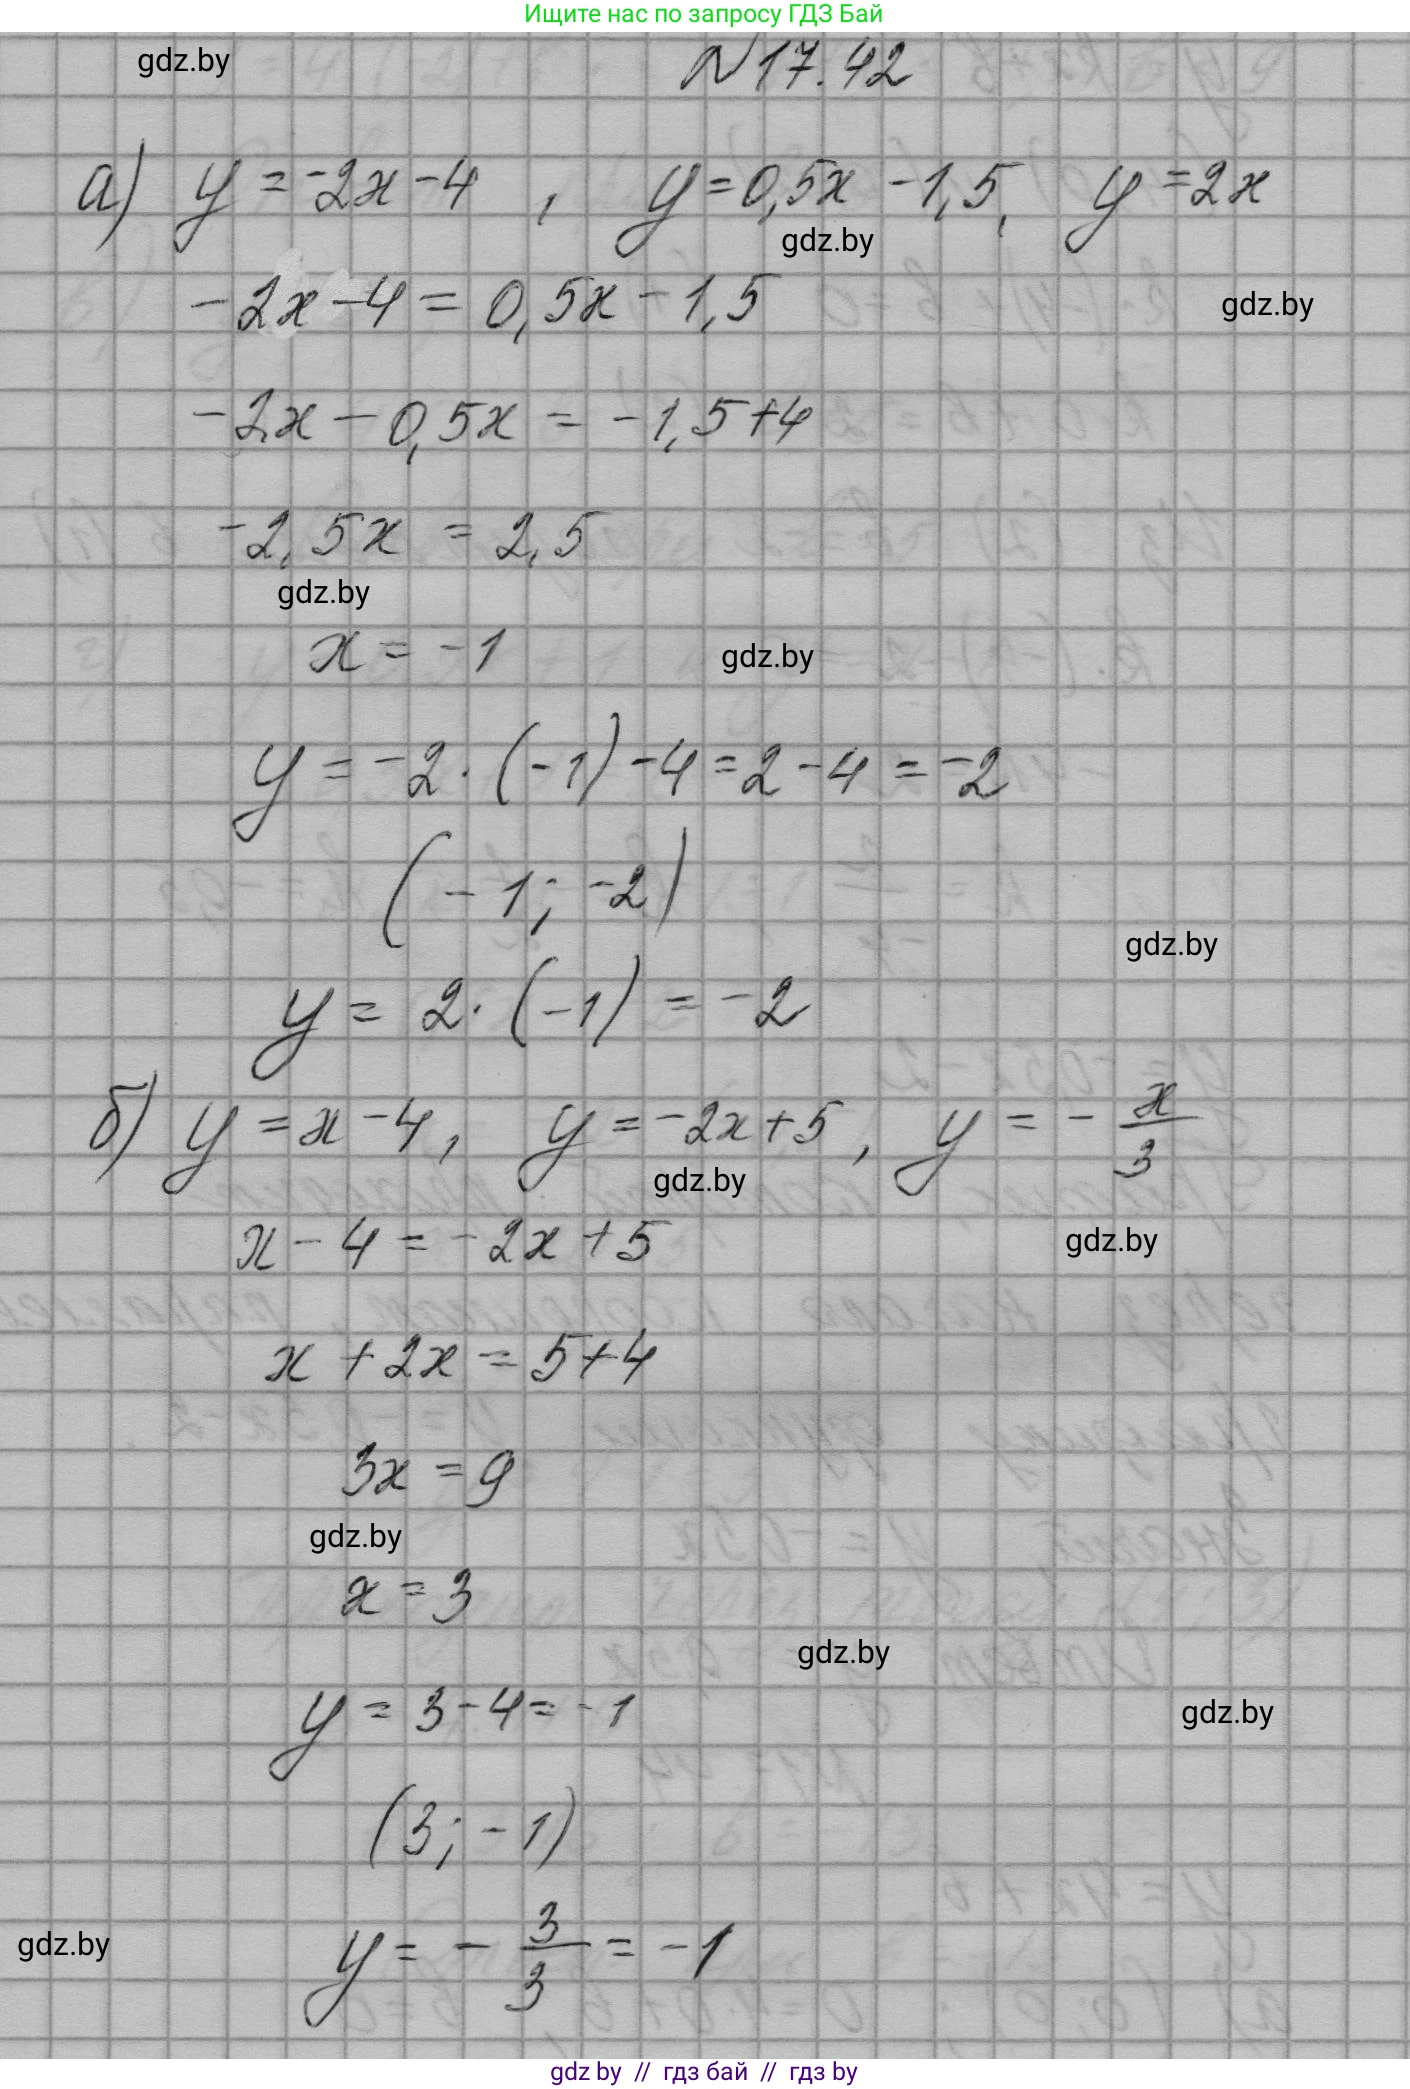 Ищите нас по запросу ГДЗ Бай
gdz.by
№17.42
а) y = -2x - 4 , y = 0,5x - 1,5, y = 2x
gdz.by
-2x - 4 = 0,5x - 1,5
gdz.by
-2x - 0,5x = -1,5 + 4
-2,5x = 2,5
gdz.by
x = -1
gdz.by
y = -2 · (-1) - 4 = 2 - 4 = -2
(-1; -2)
gdz.by
y = 2 · (-1) = -2
б) y = x - 4, y = -2x + 5, y = - x/3
gdz.by
x - 4 = -2x + 5
gdz.by
x + 2x = 5 + 4
3x = 9
gdz.by
x = 3
gdz.by
y = 3 - 4 = -1
gdz.by
(3; -1)
y = - 3/3 = -1
gdz.by
gdz by // гдз бай // гдз by